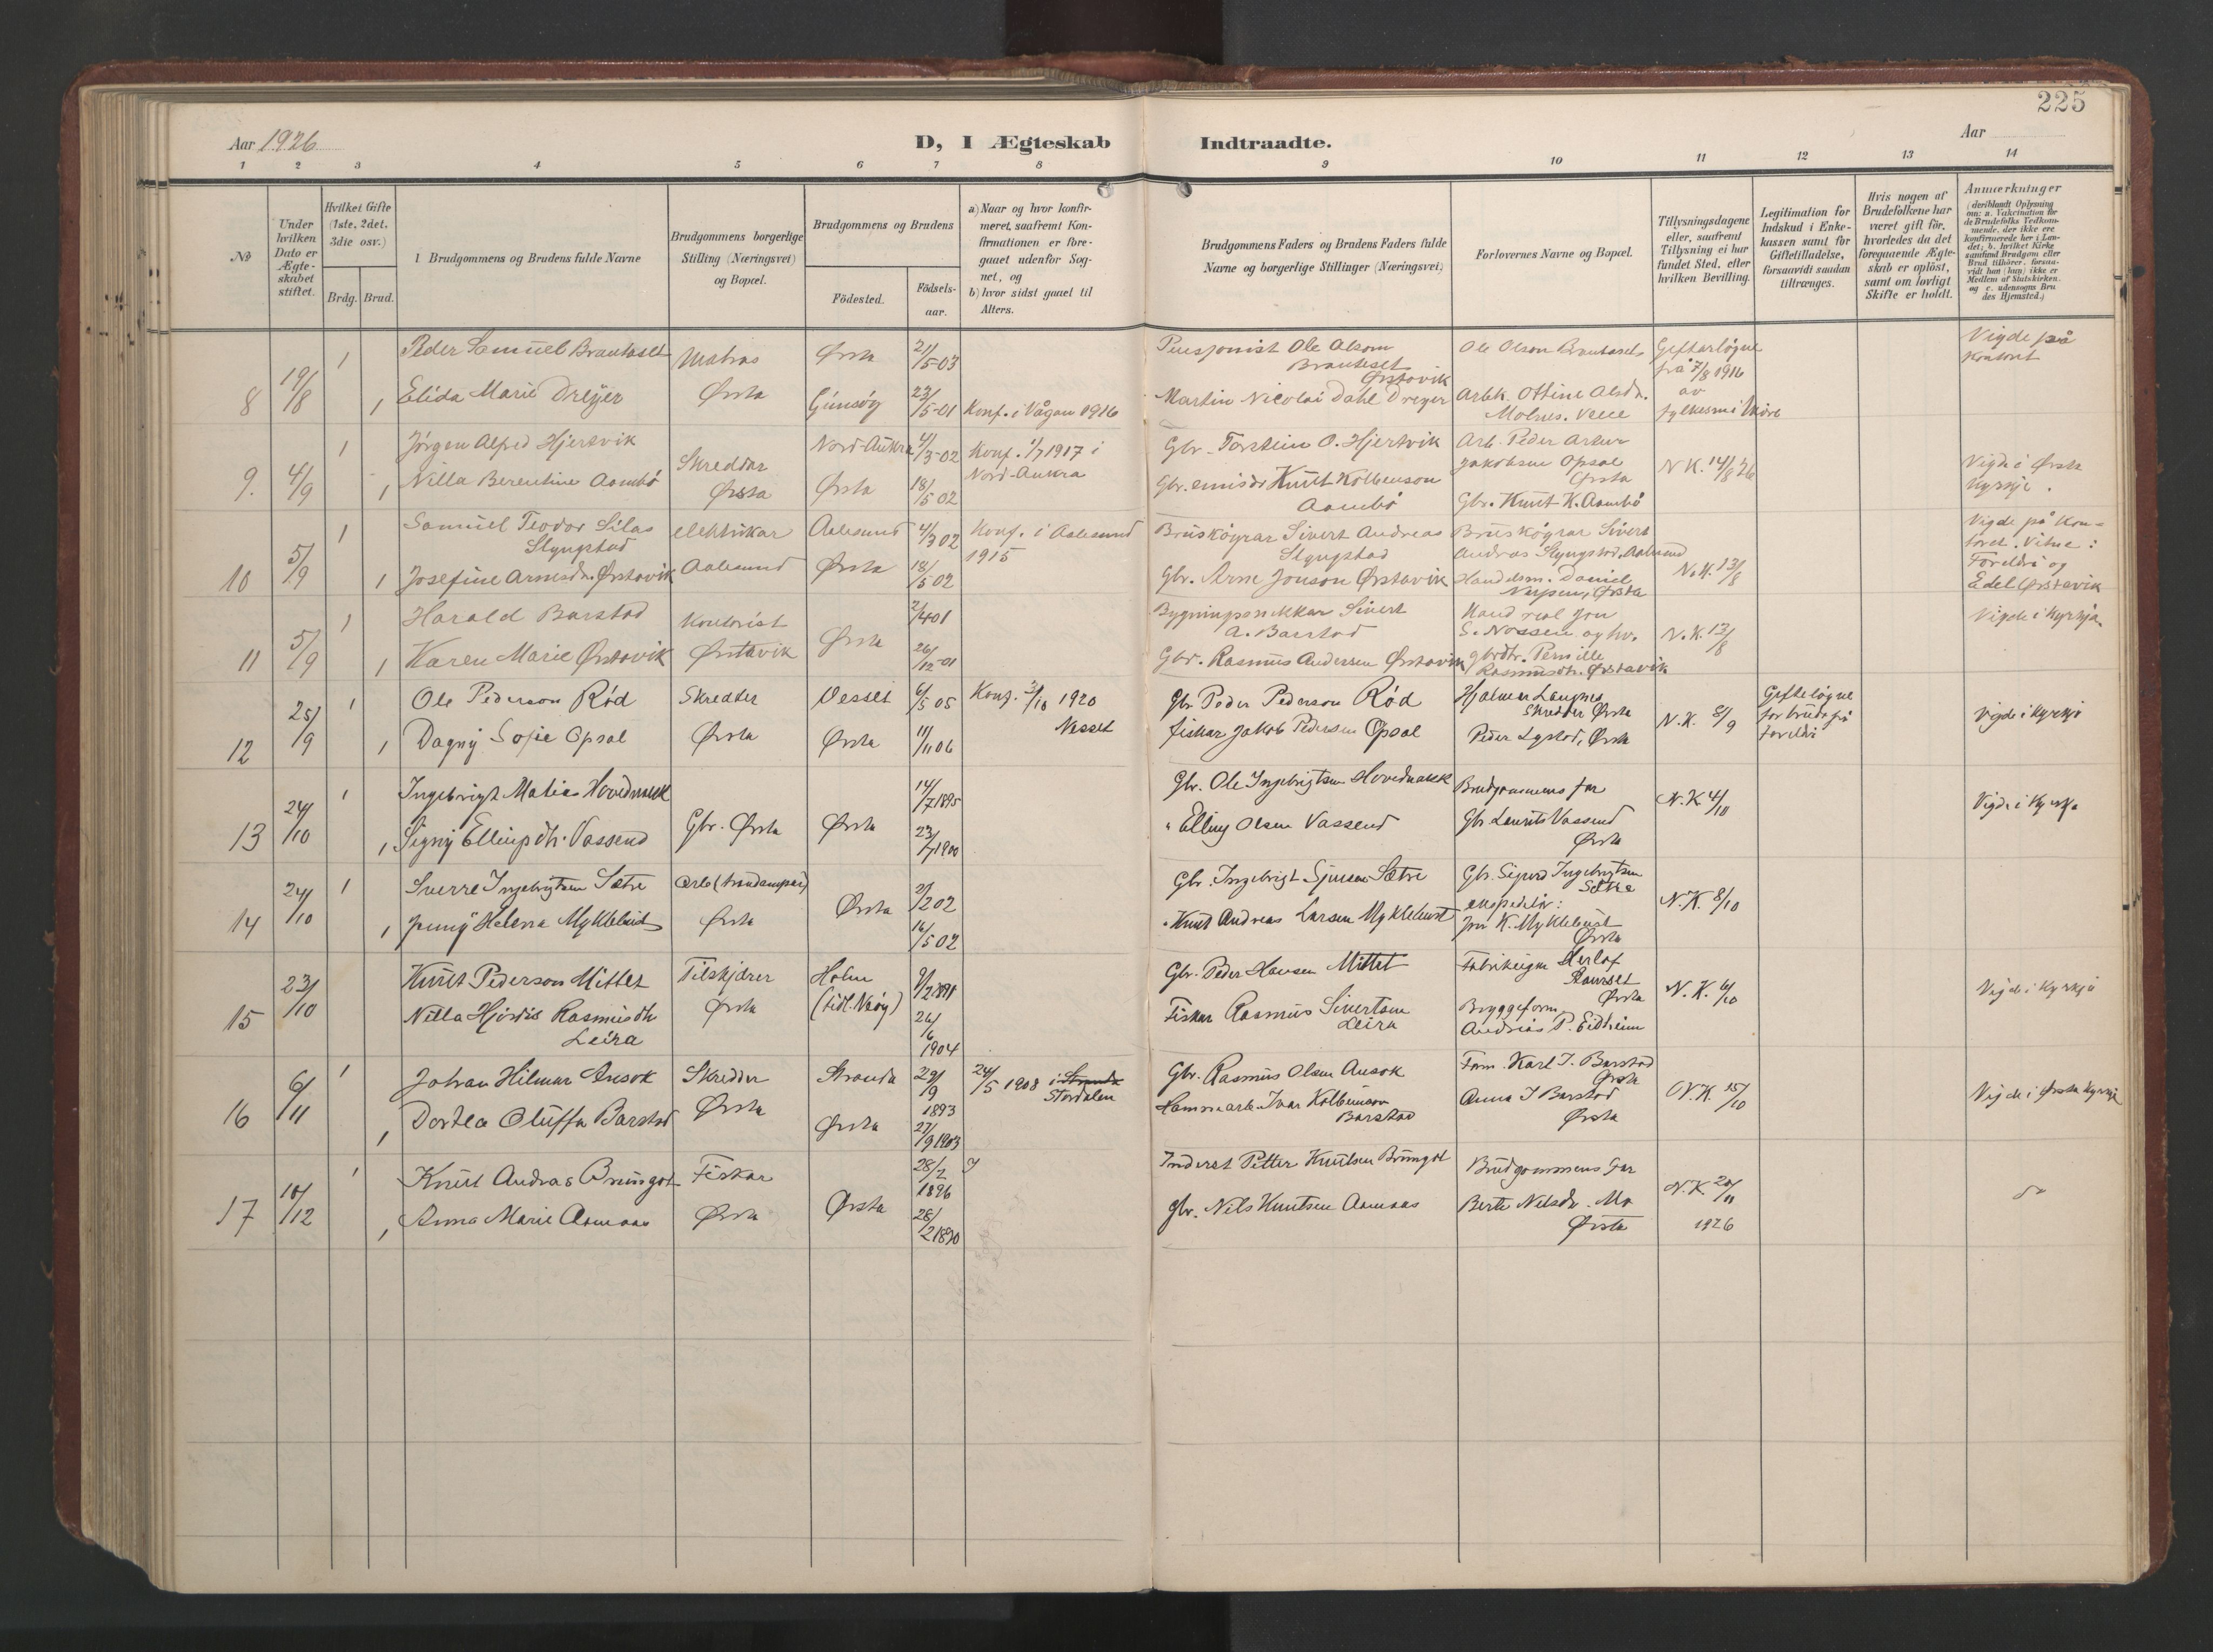 225
Aar 1926
D, I Ægteskab Indtraadte.
Aar
1 2 3 4 5 6 7 8 9 10 11 12 13 14
No
Under hvilken Dato er Ægte-skabet stiftet.
Hvilket Gifte (1ste, 2det, 3die osv.)
Brdg. Brud.
Brudgommens og Brudens fulde Navne
Brudgommens borgerlige Stilling (Næringsvei) og Bopæl.
Brudgommens og Brudens
Födested.
Födsels-aar.
a) Naar og hvor konfir-meret, saafremt Kon-firmationen er fore-gaaet udenfor Sog-net, og
b) hvor sidst gaaet til Alters.
Brudgommens Faders og Brudens Faders fulde Navne og borgerlige Stillinger (Næringsvei)
Forlovernes Navne og Bopæl.
Tillysningsdagene eller, saafremt Tillysning ei har fundet Sted, efter hvilken Bevilling.
Legitimation for Indskud i Enke-kassen samt for Giftetilladelse, forsaavidt saadan tiltrænges.
Hvis nogen af Brudefolkene har været gift för, hvorledes da det foregaaende Ægte-skab er oplöst, samt om lovligt Skifte er holdt.
Anmærkninger
(deriblandt Oplysning om: a. Vakcination for de Brudefolks Vedkom-mende, der ikke ere konfirmerede her i Lan-det; b. hvilket Kirke-samfund Brudgom eller Brud tilhörer, forsaa-vidt han (hun) ikke er Medlem af Statskirken, og c. udensogns Bru-des Hjemsted.)
8 19/8 1 Peder Samuel Brautaset Matros Ørsta 21/5-03 Pensjonist Ole Olsom Brauteset Ørstavik Ole Olson Brautaset Gifterløyve frå 7/8 1916 av fylkesm i Møre Vigde på kontoret
1 Elida Marie Dreyer Ørsta Gimsøy 23/5-01 Konf. i Vågan 1916 Martin Nicolai Dahl Dreyer Arbk. Ottine Olsdr. Molnes.
9. 4/9 1 Jörgen Alfred Hjertvik Skreddar Ørsta Nord-Aukra 4/3-02 Konf. 1/7 1917 i Nord-Aukra Gbr. Torstein O. Hjertvik Arb. Peder Artur Jakobsen Opsal Ørsta N.K. 14/8 26 Vigde i Ørsta Kyrkje.
1 Nilla Berentine Aambö Ørsta 18/5 02 Gbr. Knut Kolbeinson Aambö Gbr. Knut K. Aambö
10 5/9 1 Samuel Teodor Silas Slyngstad elektrikar Aalesund Aalesund 4/3 02 Konf. i Aalesund 1915 Bruskögrar Sivert Andreas Slyngstad Bruskögrar Sivert Andreas Slyngstad, Aalesund N.K. 13/8 Vigde på Kon-toret. Vitne: Foreldri og Edel Ørstavik
1 Josefine Arnesdr. Ørstavik Ørsta 18/5 02 Gbr. Arne Jonson Ørstavik Handelsm. Daniel Ørsta
11 5/9 1 Harald Barstad Kontorist Ørstavik Ørsta 2/4 01 Sivert A. Barstad N.K. 13/8 Vigde i Kyrkja
1 Karen Marie Ørstavik 26/12-01 Gbr. Rasmus Andersen Ørstavik gbrdtr. Pernille Rasmusdtr. Ørstavik
12 25/9 1 Ole Pederson Röd Skredder Ørsta Vesset 6/5 05 Konf. 3/10 1920 Nesset Gbr Peder Pederson Röd Hjalmar Langnes Skredder Ørsta N.K. 8/9 Gifteløyve for bruda frå foreldri Vigde i Kyrkje
1 Dagny Sofie Opsal Ørsta 11/11 06 fiskar Jakob Pedersen Opsal Peder Lystad, Ørsta
13 24/10 1 Ingebrigt Matias Hovdenakk Gbr. Ørsta Ørsta 14/7 1895 Gbr. Ole Ingebrigtsen Hovdenakk Brudgommens far N.K. 4/10 Vigde i Kyrkje
1 Signy Ellingsdtr. Vassend 23/7 1900 " Elling Olsen Vassend Gbr Laurits Vassend Ørsta
14 24/10 1 Sverre Ingebrigtsen Sætre Ørsta Ørsta 2/2 02 Gbr. Ingebrigt Sjursen Sætre Gbr. Sigurd Ingebrigtsen Sætre N.K. 8/10
1 Jenny Helena Myklebust 16/5 02 " Knut Andreas Larsen Myklebust ekspeditör: Jon K. Myklebust Ørsta
15 23/10 Knut Pederson Mittet Tilskjærer Ørsta Holm 9/2 1891 Gbr. Peder Hansen Mittet Fabrikeigar Herlof Ørsta N.K. 6/10 Vigde i Kyrkje
Nilla Hjördis Rasmusdtr Leira 26/6 1904 Fiskar Rasmus Sivertsen Leira Byggeform. Andreas P. Eidheim
16 6/11 1 Johan Hilmar Ansok Skredder Ørsta Stranda 29/9 1893 24/5 1908 i Stranda Stordalen Gbr. Rasmus Olsen Ansok Form. Karl I. Barstad Ørsta N.K. 15/10 Vigde i Ørsta Kyrkje
1 Dortea Oluffa Barstad Ørsta 27/9 1903 Ivar Kolbeinson Barstad Anna I Barstad Ørsta
17 10/12 1 Knut Andreas Brungot Fiskar Ørsta Ørsta 28/2 1896 Inderst Petter Knutsen Brungot Brudgommens far N.K. 20/11 1926 do
1 Anna Marie Aamaas 28/2 1890 gbr. Nils Knutsen Aamaas Berte Nilsdr. Mo Ørsta